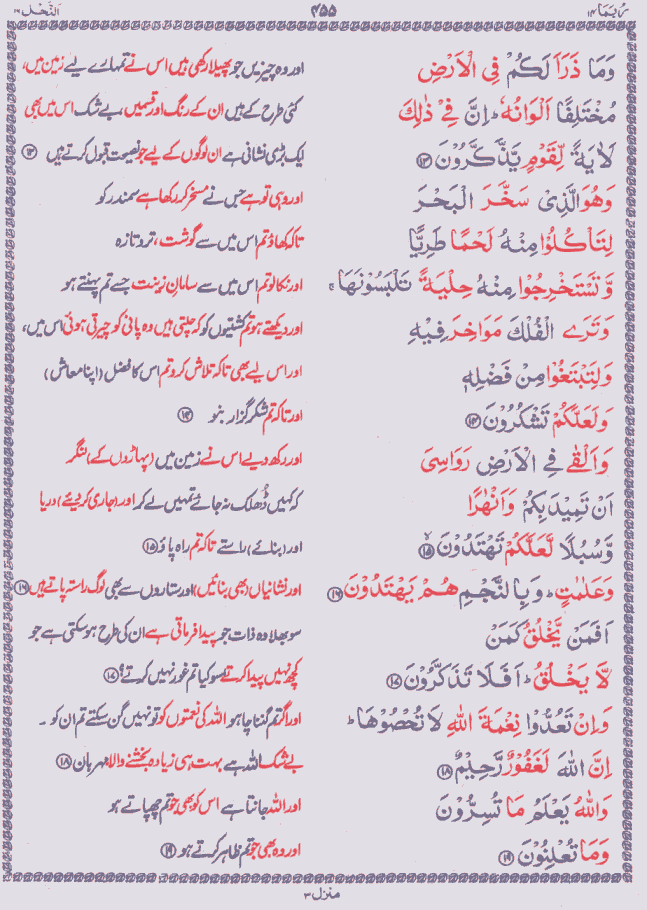 رُبَمَا ۱۴
۴۵۵
اَلنَّحْل ۱۶
وَمَا ذَرَاَ لَكُمْ فِى الْاَرْضِ
اور وہ چیزیں جو پھیلا رکھی ہیں اس نے تمہارے لیے زمین میں،
مُخْتَلِفًا اَلْوَانُهٗ ؕ اِنَّ فِىْ ذٰلِكَ
کئی طرح کے ہیں ان کے رنگ اور قسمیں، بے شک اس میں بھی
لَاٰيَةً لِّقَوْمٍ يَّذَّكَّرُوْنَ ۝۱۳
ایک بڑی نشانی ہے ان لوگوں کے لیے جو نصیحت قبول کرتے ہیں ۝۱۳
وَهُوَ الَّذِىْ سَخَّرَ الْبَحْرَ
اور وہی تو ہے جس نے مسخر کر رکھا ہے سمندر کو
لِتَاْكُلُوْا مِنْهُ لَحْمًا طَرِيًّا
تاکہ کھاؤ تم اس میں سے گوشت، تروتازہ
وَّتَسْتَخْرِجُوْا مِنْهُ حِلْيَةً تَلْبَسُوْنَهَا ۚ
اور نکالو تم اس میں سے سامانِ زینت جسے تم پہنتے ہو
وَتَرَى الْفُلْكَ مَوَاخِرَ فِيْهِ
اور دیکھتے ہو تم کشتیوں کو کہ چلتی ہیں وہ پانی کو چیرتی ہوئی اس میں،
وَلِتَبْتَغُوْا مِنْ فَضْلِهٖ
اور اس لیے بھی تاکہ تلاش کرو تم اس کا فضل (اپنا معاش)
وَلَعَلَّكُمْ تَشْكُرُوْنَ ۝۱۴
اور تاکہ تم شکر گزار بنو ۝۱۴
وَاَلْقٰى فِى الْاَرْضِ رَوَاسِىَ
اور رکھ دیے اس نے زمین میں (پہاڑوں کے) لنگر
اَنْ تَمِيْدَ بِكُمْ وَاَنْهٰرًا
کہ کہیں ڈھلک نہ جائے تمہیں لے کر اور (جاری کر دیئے) دریا
وَّسُبُلًا لَّعَلَّكُمْ تَهْتَدُوْنَ ۝۱۵
اور (بنائے) راستے تاکہ تم راہ پاؤ ۝۱۵
وَعَلٰمٰتٍ ؕ وَبِالنَّجْمِ هُمْ يَهْتَدُوْنَ ۝۱۶
اور نشانیاں (بھی بنائیں) اور ستاروں سے بھی لوگ راستہ پاتے ہیں ۝۱۶
اَفَمَنْ يَّخْلُقُ كَمَنْ
سو بھلا وہ ذات جو پیدا فرماتی ہے ان کی طرح ہو سکتی ہے جو
لَّا يَخْلُقُ ؕ اَفَلَا تَذَكَّرُوْنَ ۝۱۷
کچھ نہیں پیدا کرتے سو کیا تم غور نہیں کرتے؟ ۝۱۷
وَاِنْ تَعُدُّوْا نِعْمَةَ اللّٰهِ لَا تُحْصُوْهَا ؕ
اور اگر تم گننا چاہو اللہ کی نعمتوں کو تو نہیں گن سکتے تم ان کو ۔
اِنَّ اللّٰهَ لَغَفُوْرٌ رَّحِيْمٌ ۝۱۸
بے شک اللہ ہے بہت ہی زیادہ بخشنے والا مہربان ۝۱۸
وَاللّٰهُ يَعْلَمُ مَا تُسِرُّوْنَ
اور اللہ جانتا ہے اس کو بھی جو تم چھپاتے ہو
وَمَا تُعْلِنُوْنَ ۝۱۹
اور وہ بھی جو تم ظاہر کرتے ہو ۝۱۹
منزل ۳